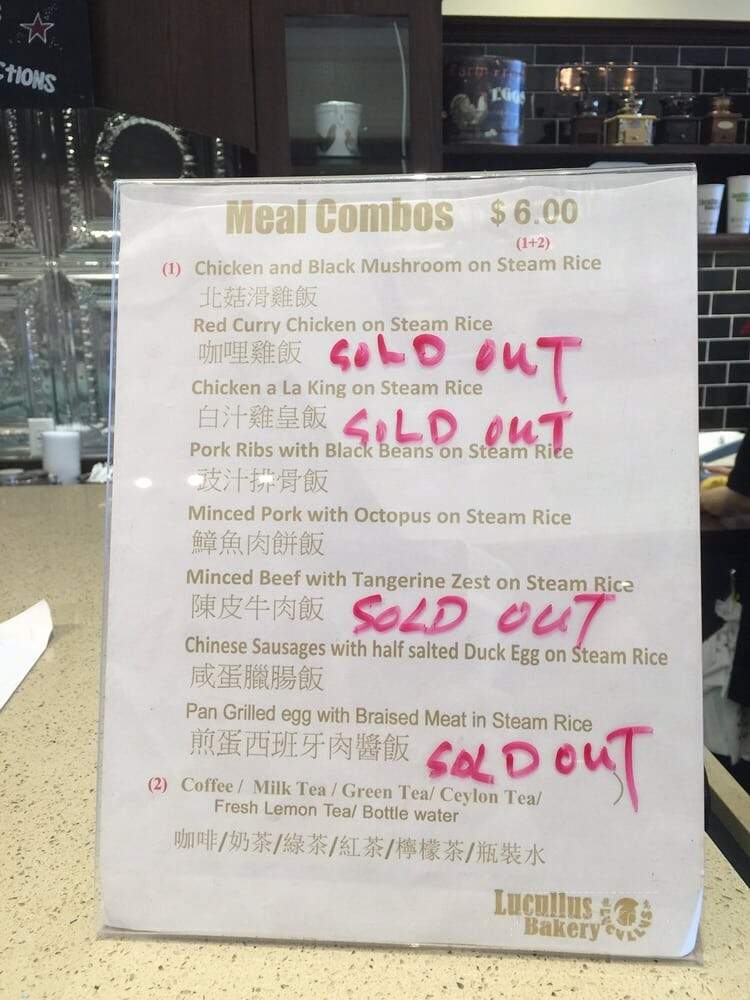 CTIONS
EGGS
Meal Combos $ 6.00
(1+2)
(1) Chicken and Black Mushroom on Steam Rice
北菇滑雞飯
Red Curry Chicken on Steam Rice
咖哩雞飯 SOLD OUT
Chicken a La King on Steam Rice
白汁雞皇飯 SOLD OUT
Pork Ribs with Black Beans on Steam Rice
豉汁排骨飯
Minced Pork with Octopus on Steam Rice
鱆魚肉餅飯
Minced Beef with Tangerine Zest on Steam Rice
陳皮牛肉飯 SOLD OUT
Chinese Sausages with half salted Duck Egg on Steam Rice
咸蛋臘腸飯
Pan Grilled egg with Braised Meat in Steam Rice
煎蛋西班牙肉醬飯 SOLD OUT
(2) Coffee / Milk Tea / Green Tea/ Ceylon Tea/
Fresh Lemon Tea/ Bottle water
咖啡/奶茶/綠茶/紅茶/檸檬茶/瓶裝水
Lucullus
Bakery